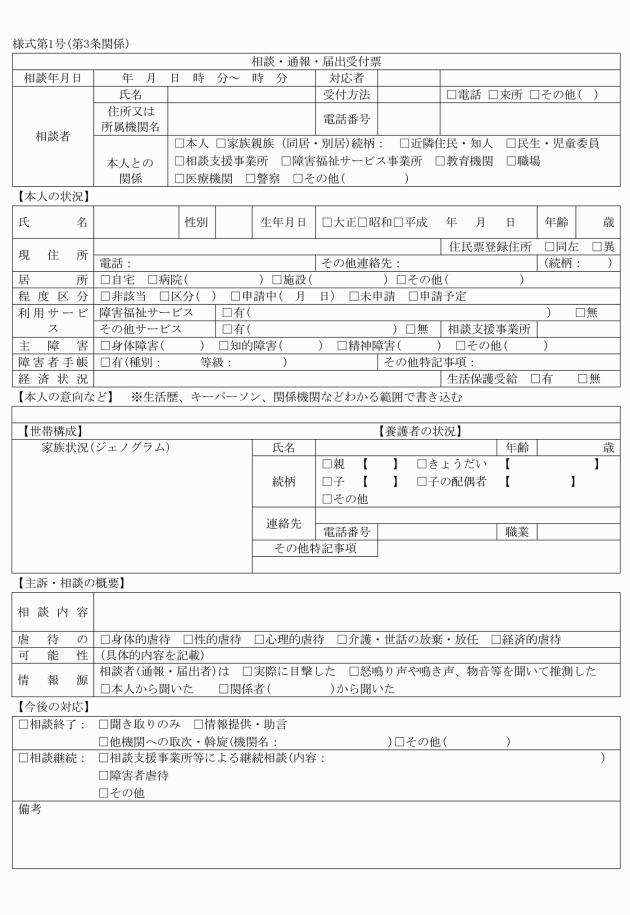 様式第1号(第3条関係)
相談・通報・届出受付票
相談年月日 年 月 日 時 分～ 時 分 対応者
相談者 氏名 受付方法 □電話 □来所 □その他( )
住所又は所属機関名 電話番号
本人との関係 □本人 □家族親族 (同居・別居)続柄： □近隣住民・知人 □民生・児童委員
□相談支援事業所 □障害福祉サービス事業所 □教育機関 □職場
□医療機関 □警察 □その他( )
【本人の状況】
氏名 性別 生年月日 □大正□昭和□平成 年 月 日 年齢 歳
現住所 住民票登録住所 □同左 □異
電話： その他連絡先： (続柄： )
居所 □自宅 □病院( ) □施設( ) □その他( )
程度区分 □非該当 □区分( ) □申請中( 月 日) □未申請 □申請予定
利用サービス 障害福祉サービス □有( ) □無
その他サービス □有( ) □無 相談支援事業所
主障害 □身体障害( ) □知的障害( ) □精神障害( ) □その他( )
障害者手帳 □有(種別： 等級： ) その他特記事項：
経済状況 生活保護受給 □有 □無
【本人の意向など】 ※生活歴、キーパーソン、関係機関などわかる範囲で書き込む
【世帯構成】 【養護者の状況】
家族状況(ジェノグラム) 氏名 年齢 歳
続柄 □親 【 】 □きょうだい 【 】
□子 【 】 □子の配偶者 【 】
□その他
連絡先
電話番号 職業
その他特記事項
【主訴・相談の概要】
相談内容
虐待の可能性 □身体的虐待 □性的虐待 □心理的虐待 □介護・世話の放棄・放任 □経済的虐待
(具体的内容を記載)
情報源 相談者(通報・届出者)は □実際に目撃した □怒鳴り声や鳴き声、物音等を聞いて推測した
□本人から聞いた □関係者( )から聞いた
【今後の対応】
□相談終了： □聞き取りのみ □情報提供・助言
□他機関への取次・斡旋(機関名： )□その他( )
□相談継続： □相談支援事業所等による継続相談(内容： )
□障害者虐待
□その他
備考